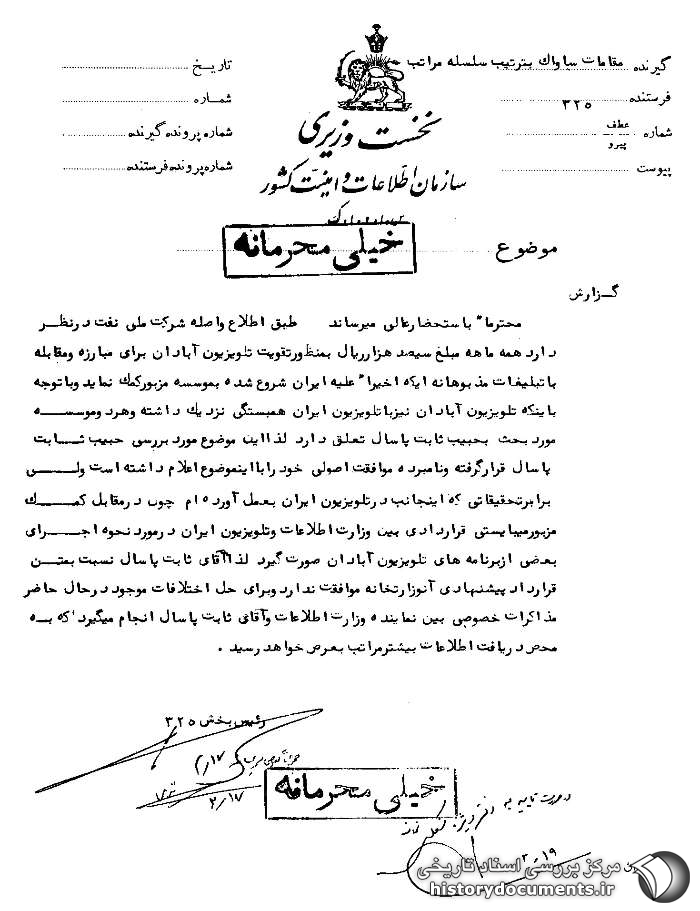 گیرنده مقامات ساواك بترتیب سلسله مراتب
فرستنده ۳۲۵
شماره عطف پیرو
پیوست
نخست وزیری
سازمان اطلاعات و امنیت کشور
س.ا.و.ا.ک
تاریخ
شماره
شماره پرونده گیرنده
شماره پرونده فرستنده
موضوع
خیلی محرمانه
گزارش
محترما" باستحضارعالی میرساند طبق اطلاع واصله شرکت ملی نفت درنظر
دارد همه ماهه مبلغ سیصد هزارریال بمنظورتقویت تلویزیون آبادان برای مبارزه ومقابله
باتبلیغات مذبوهانه ایکه اخیرا" علیه ایران شروع شده بموسسه مزبورکمک نماید وباتوجه
باینکه تلویزیون آبادان نیزباتلویزیون ایران همبستگی نزدیك داشته وهرد وموسسه
مورد بحث بحبیب ثابت پاسال تعلق دارد لذااین موضوع مورد بررسی حبیب ثابت
پاسال قرارگرفته ونامبرده موافقت اصولی خود رابااینموضوع اعلام داشته است ولی
برابرتحقیقاتی که اینجانب درتلویزیون ایران بعمل آورده ام چون درمقابل کمک
مزبورمیبایستی قراردادی بین وزارت اطلاعات وتلویزیون ایران درمورد نحوه اجرای
بعضی ازبرنامه های تلویزیون آبادان صورت گیرد لذاآقای ثابت پاسال نسبت بمتن
قرارداد پیشنهادی آنوزارتخانه موافقت ندارد وبرای حل اختلافات موجود درحال حاضر
مذاکرات خصوصی بین نماینده وزارت اطلاعات وآقای ثابت پاسال انجام میگیرد که به
محض دریافت اطلاعات بیشترمراتب بعرض خواهد رسید .
رئیس بخش ۳۲۵
۲/۱۷
۲/۱۷
خیلی محرمانه
در صورت تایید به دفتر ویژه
۲-۱۹
مرکز بررسی اسناد تاریخی
historydocuments.ir